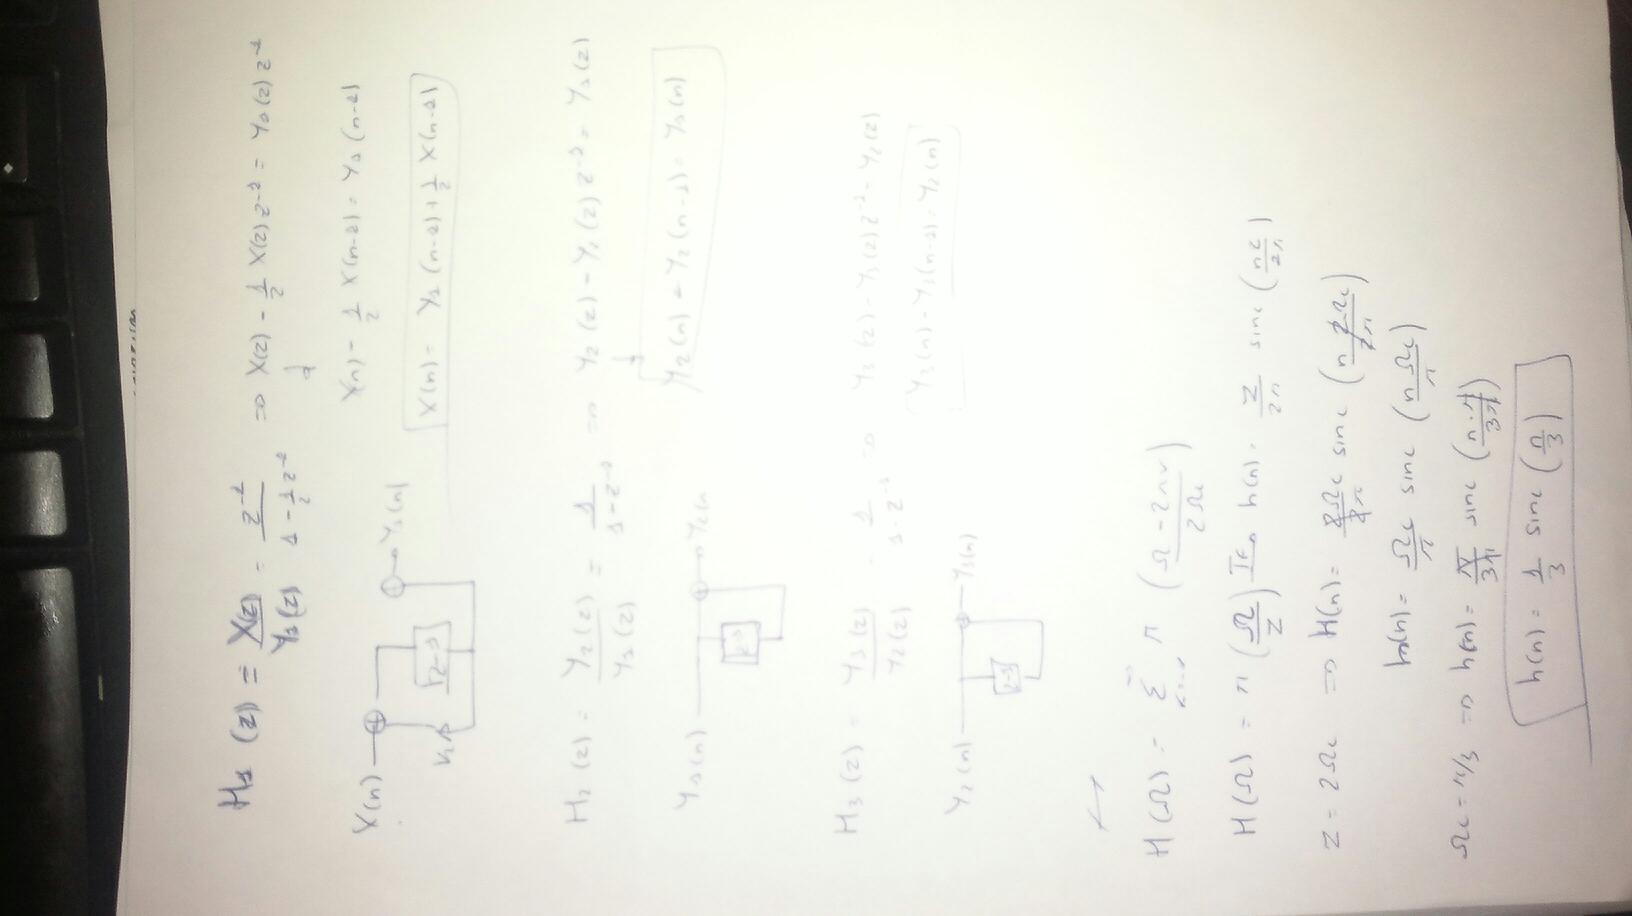 H1 (z) = X(z) / Y1(z) = z^-1 / (1 - 1/2 z^-1) => X(z) - 1/2 X(z) z^-1 = Y1(z) z^-1
X(n) - 1/2 X(n-1) = Y1(n-1)
X(n) = Y1(n-1) + 1/2 X(n-1)
X(n) 1/2 z^-1 Y1(n)
H2(z) = Y2(z) / Y1(z) = 1 / (1 - z^-1) => Y2(z) - Y2(z) z^-1 = Y1(z)
Y2(n) - Y2(n-1) = Y1(n)
Y1(n) Y2(n
H3(z) = Y3(z) / Y2(z) = 1 / (1 - z^-1) => Y3(z) - Y3(z) z^-1 = Y2(z)
Y3(n) - Y3(n-1) = Y2(n)
Y2(n) z^-1 Y3(n)
H(Ω) = Σ π ((Ω - 2πk) / 2Ωc)
H(Ω) = π (Ω/z) h(n) = z/2π sinc (nz/2π)
z = 2Ωc => H(n) = 2Ωc/2π sinc (n 2Ωc/2π)
h(n) = Ωc/π sinc (n Ωc/π)
Ωc = π/3 => h(n) = π/3π sinc (n·π/3π)
h(n) = 1/3 sinc (n/3)